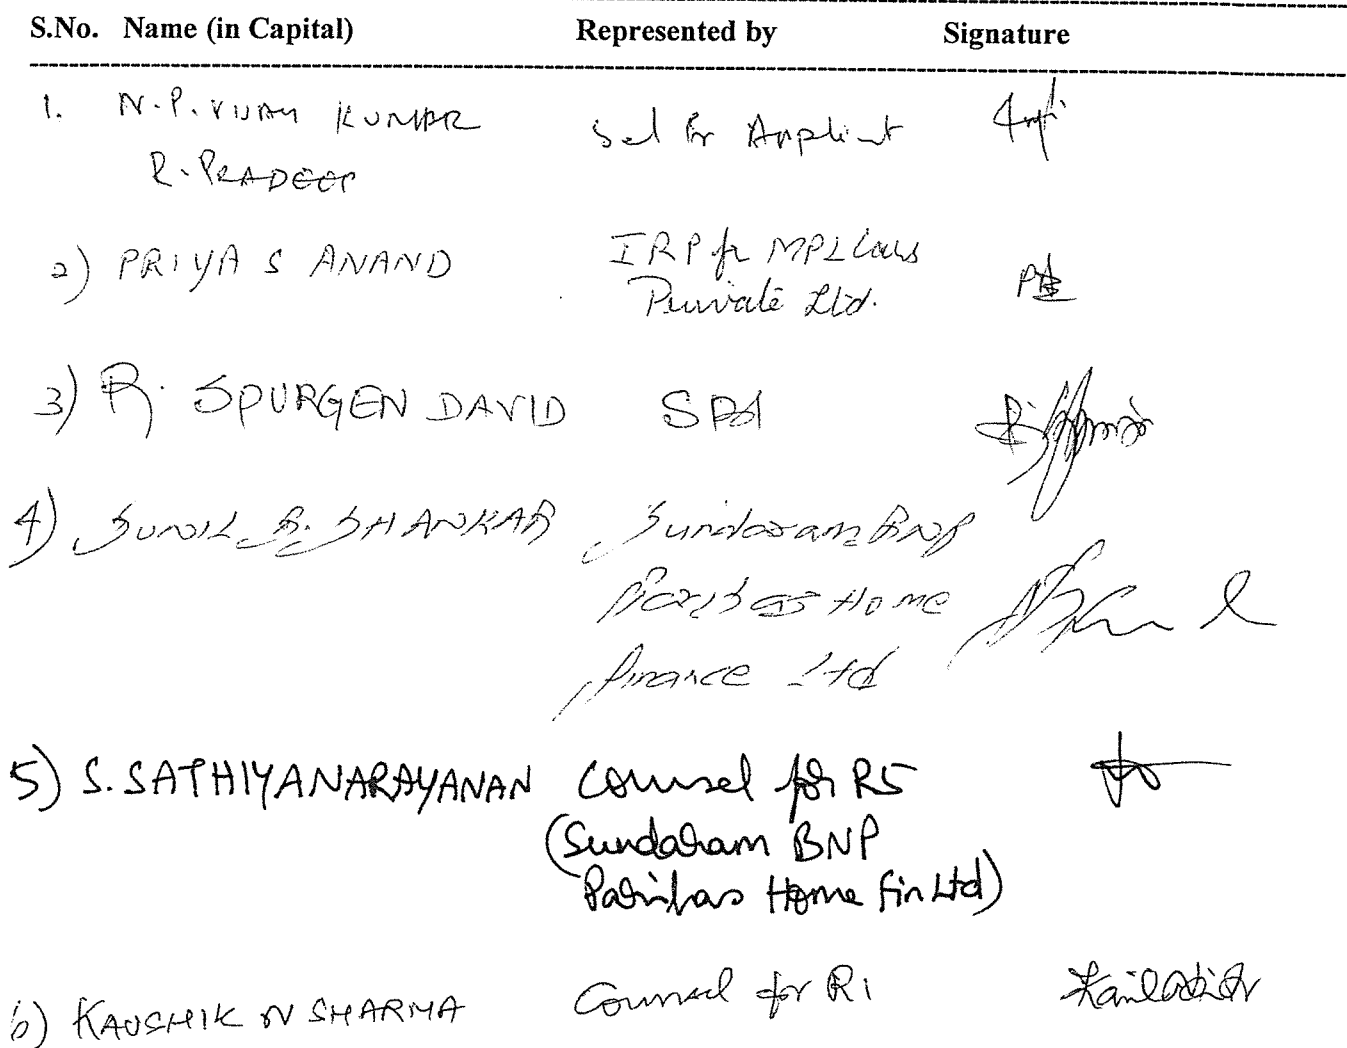 S.No. Name (in Capital) Represented by Signature
1. N.P. VIJAY KUMAR
R. PRADEEP
for
2) PRIYA S ANAND IRP for MPL Cars
Private Ltd.
3) R. SPURGEN DAVID
4) SUNIL R. SHANKAR Sundaram BNP
Paribas Home
Finance Ltd
5) S. SATHIYANARAYANAN Counsel for R5
(Sundaram BNP
Paribas Home Fin Ltd)
6) KAUSHIK N SHARMA Counsel for R1